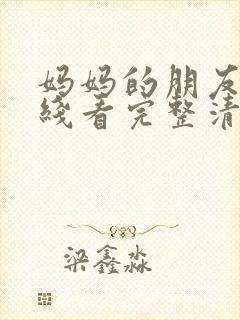 妈妈的朋友
线看完整清
梁鑫淼